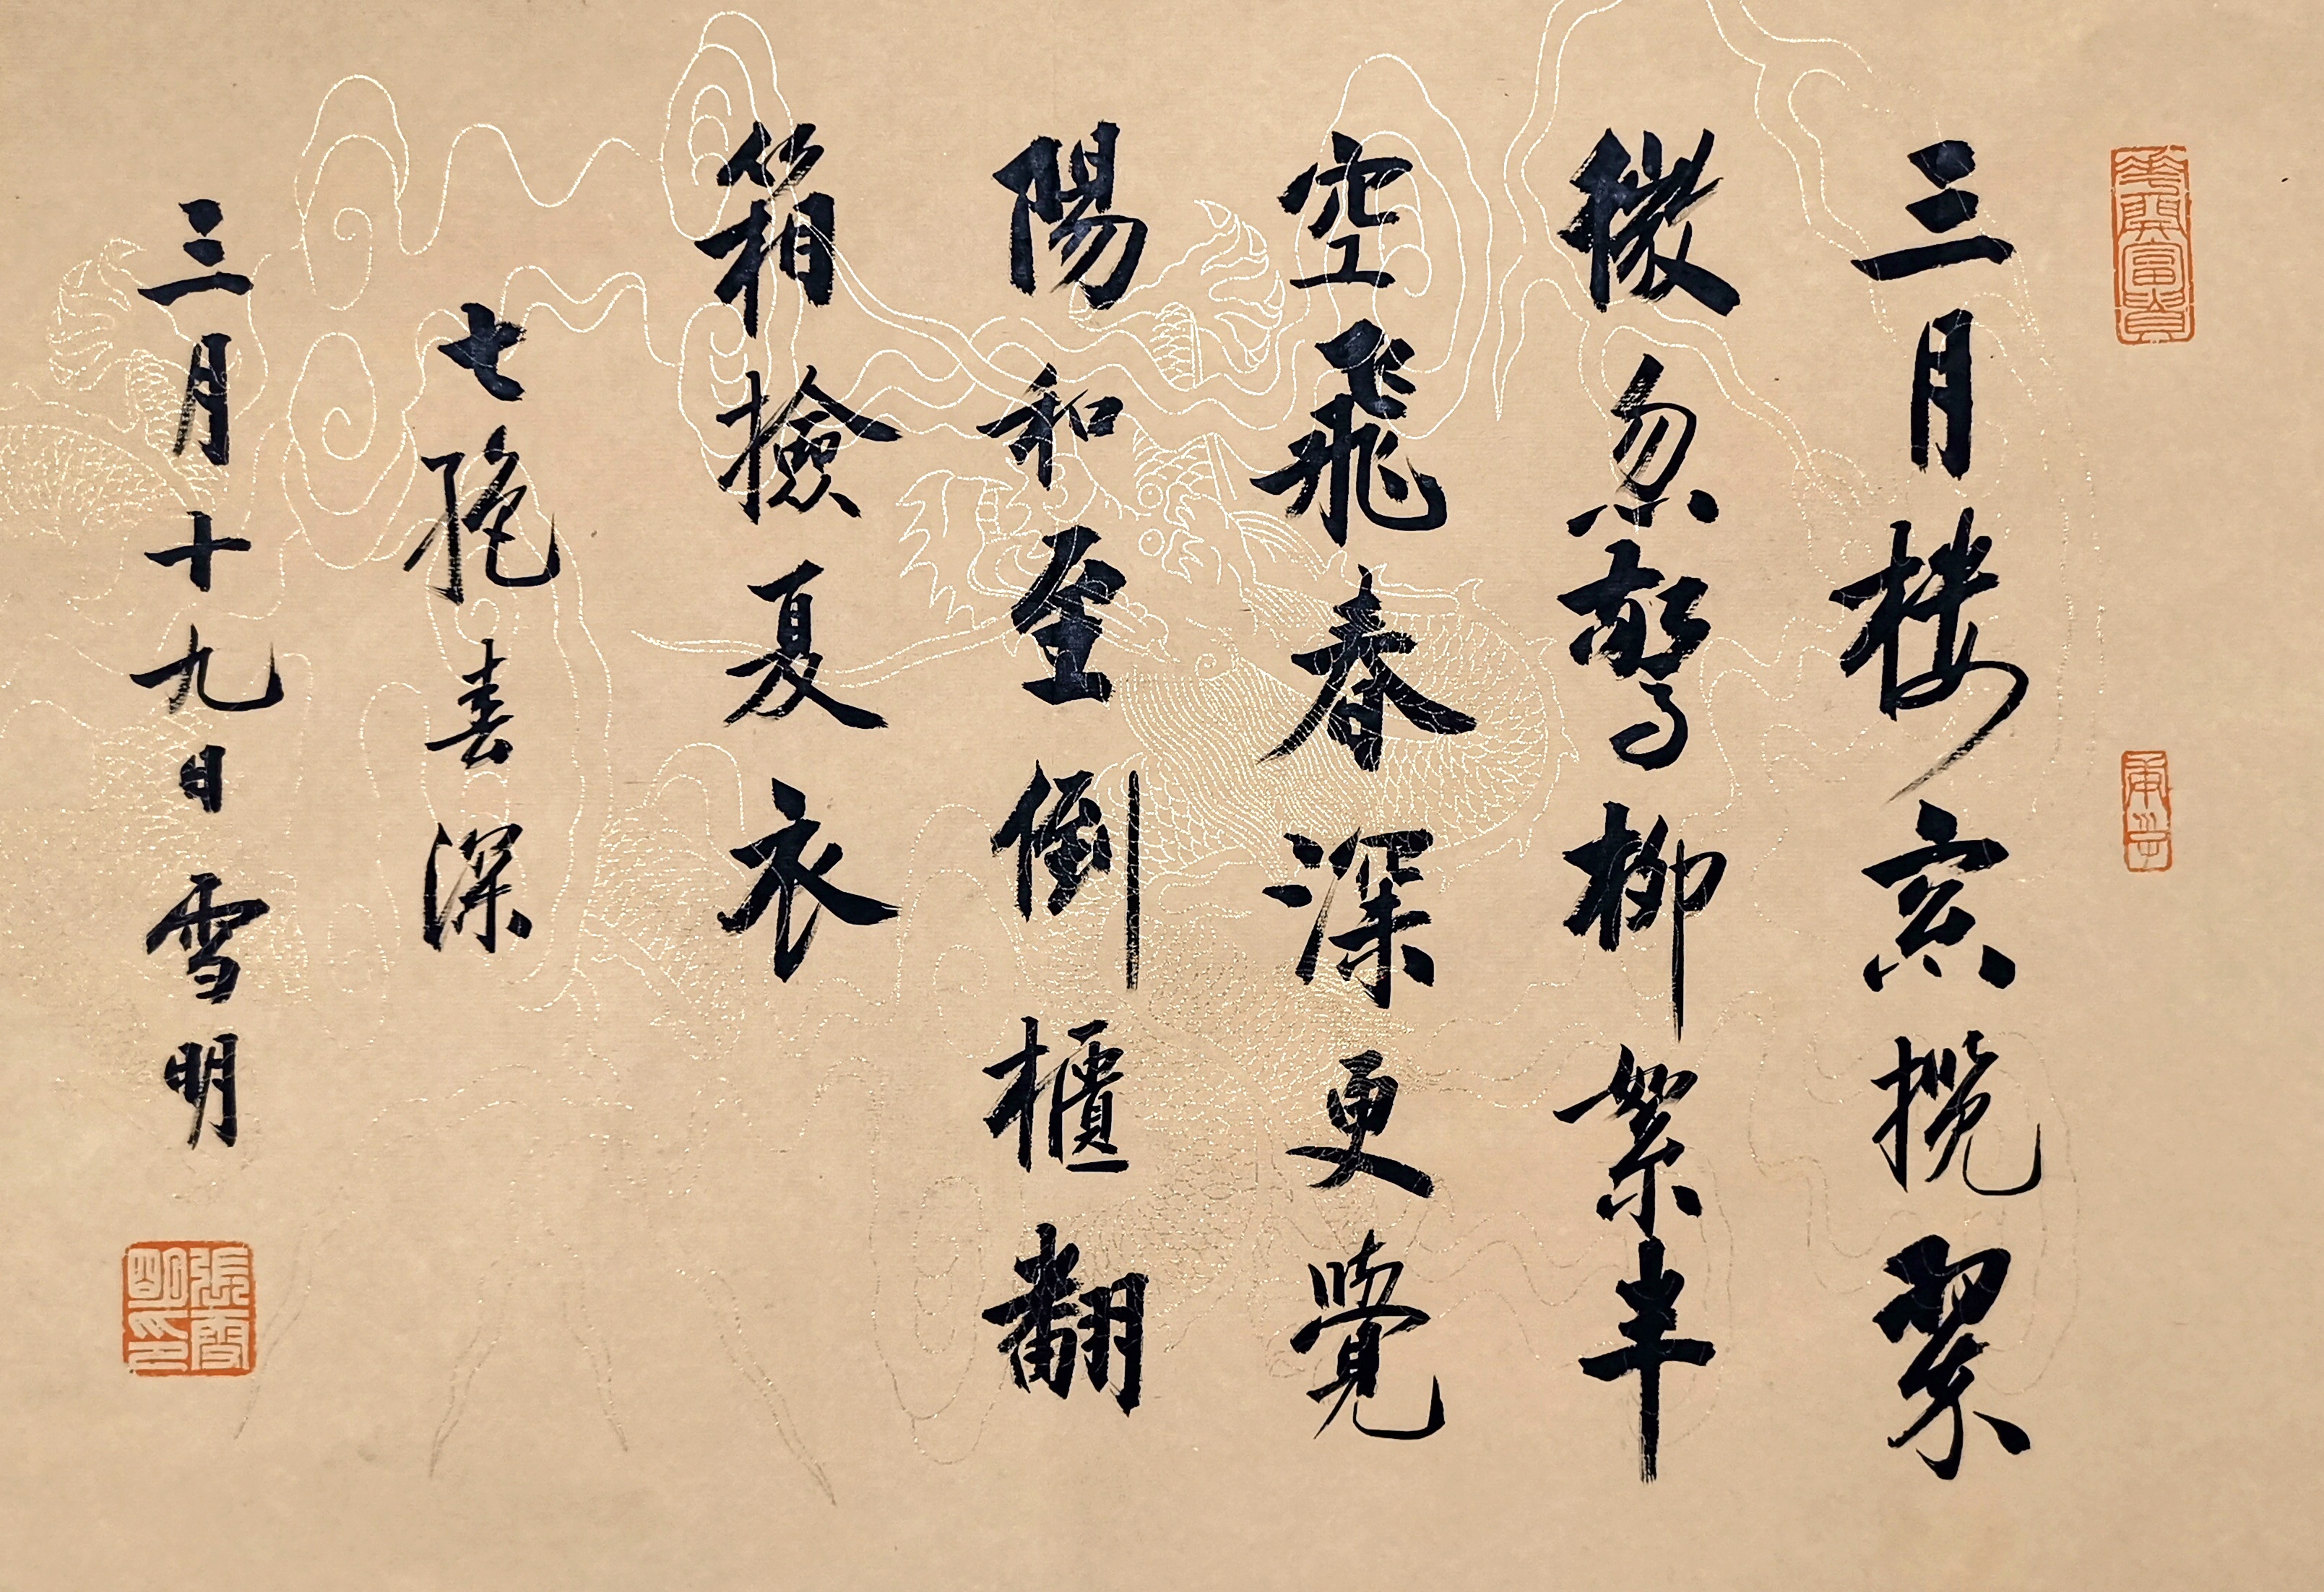 花開富貴
三月樓窓攬翠
微忽驚柳絮半
空飛春深更覺
陽和至倒櫃翻
箱撿夏衣
七絕春深
三月十九日雪明
張雪明印